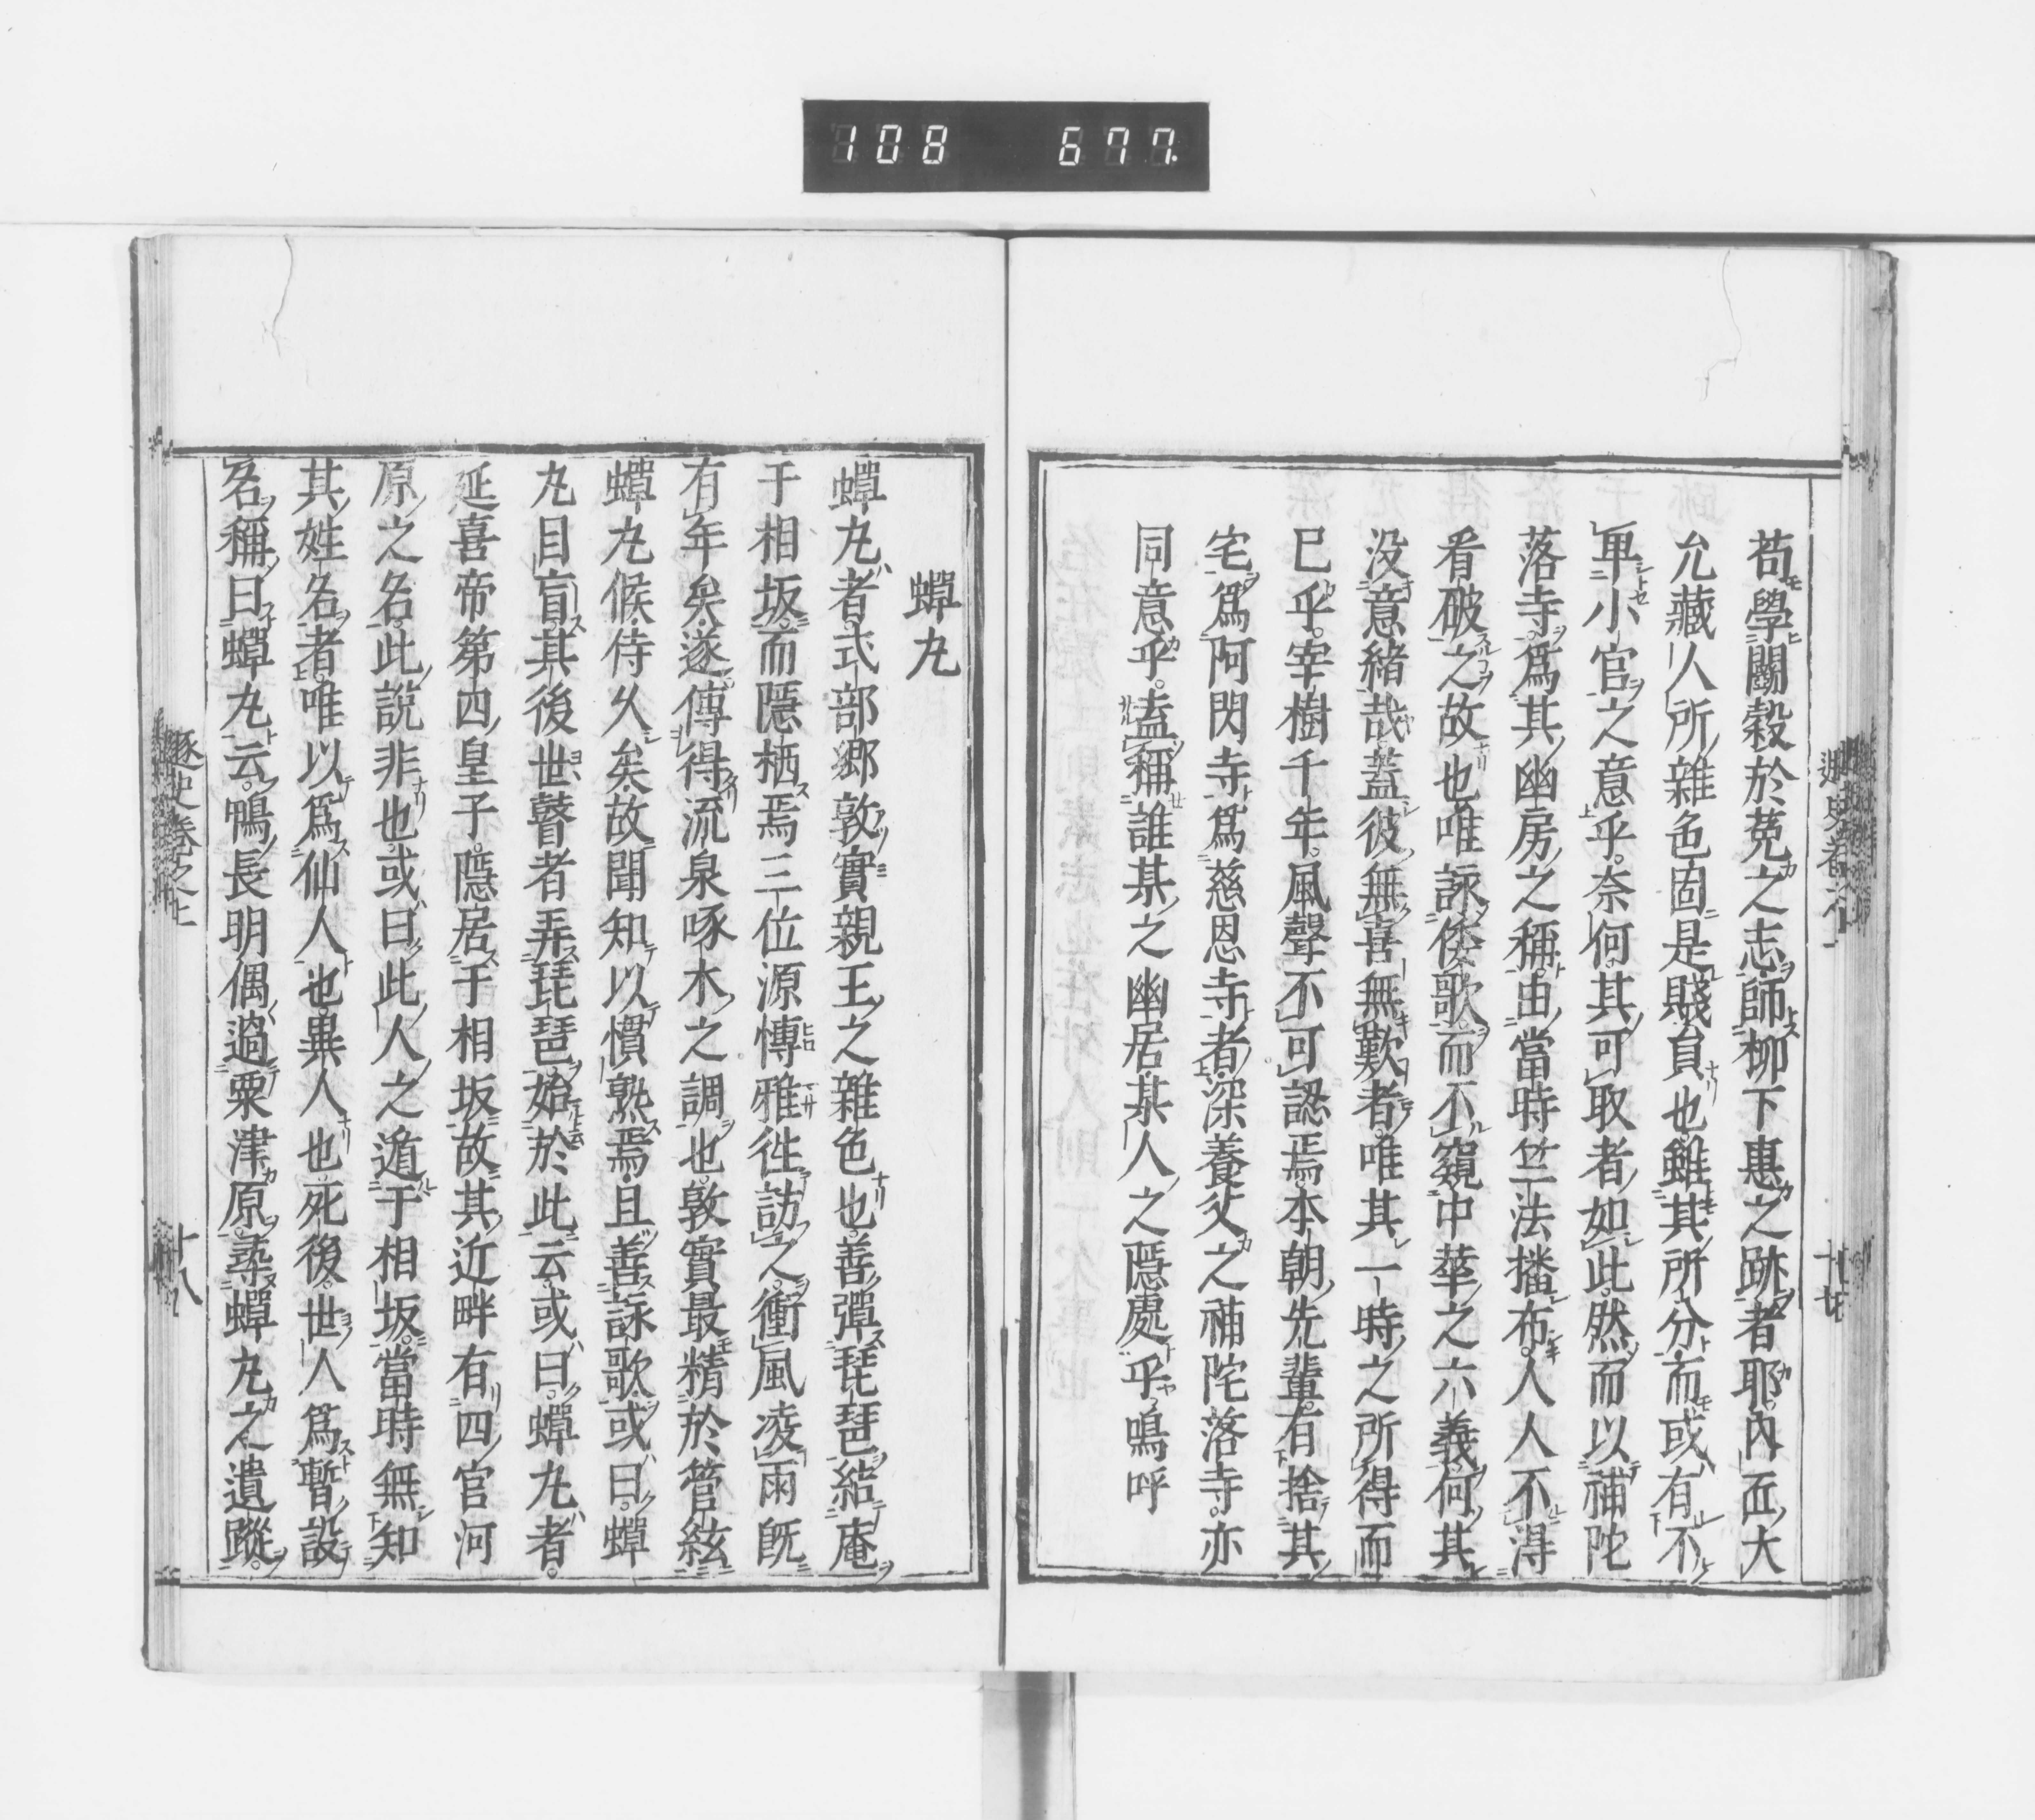 108 677.
苟學鬭穀於菟之志師柳下惠之跡者耶內匠大
允藏人所雜色固是賤負也雖其所分而或有不
卑小官之意乎奈何其可取者如此然而以補陀
落寺爲其幽房之稱由當時竺法播布人人不得
看破之故也唯詠倭歌而不窺中華之六義何其
没意緒哉蓋彼無喜無歎者唯其一時之所得而
已乎宰樹千年風聲不可認焉本朝先輩有捨其
宅爲阿閦寺爲慈恩寺者深養父之補陀落寺亦
同意乎盍稱誰某之幽居某人之隱處乎嗚呼
十七
蟬丸
蟬丸者式部鄉敦實親王之雜色也善彈琵琶結庵
于相坂而隱栖焉三位源博雅徃訪之衝風凌雨既
有年矣遂傳得流泉啄木之調也敦實最精於管絃
蟬丸候侍久矣故聞知以慣熟焉且善詠歌或曰蟬
丸目盲其後世瞽者弄琵琶始於此云或曰蟬丸者
延喜帝第四皇子隱居于相坂故其近畔有四官河
原之名此說非也或曰此人之遁于相坂當時無知
其姓名者唯以爲仙人也異人也死後世人爲暫設
名稱曰蟬丸云鴨長明偶過粟津原尋蟬丸之遺蹤
遯史卷之上
十八